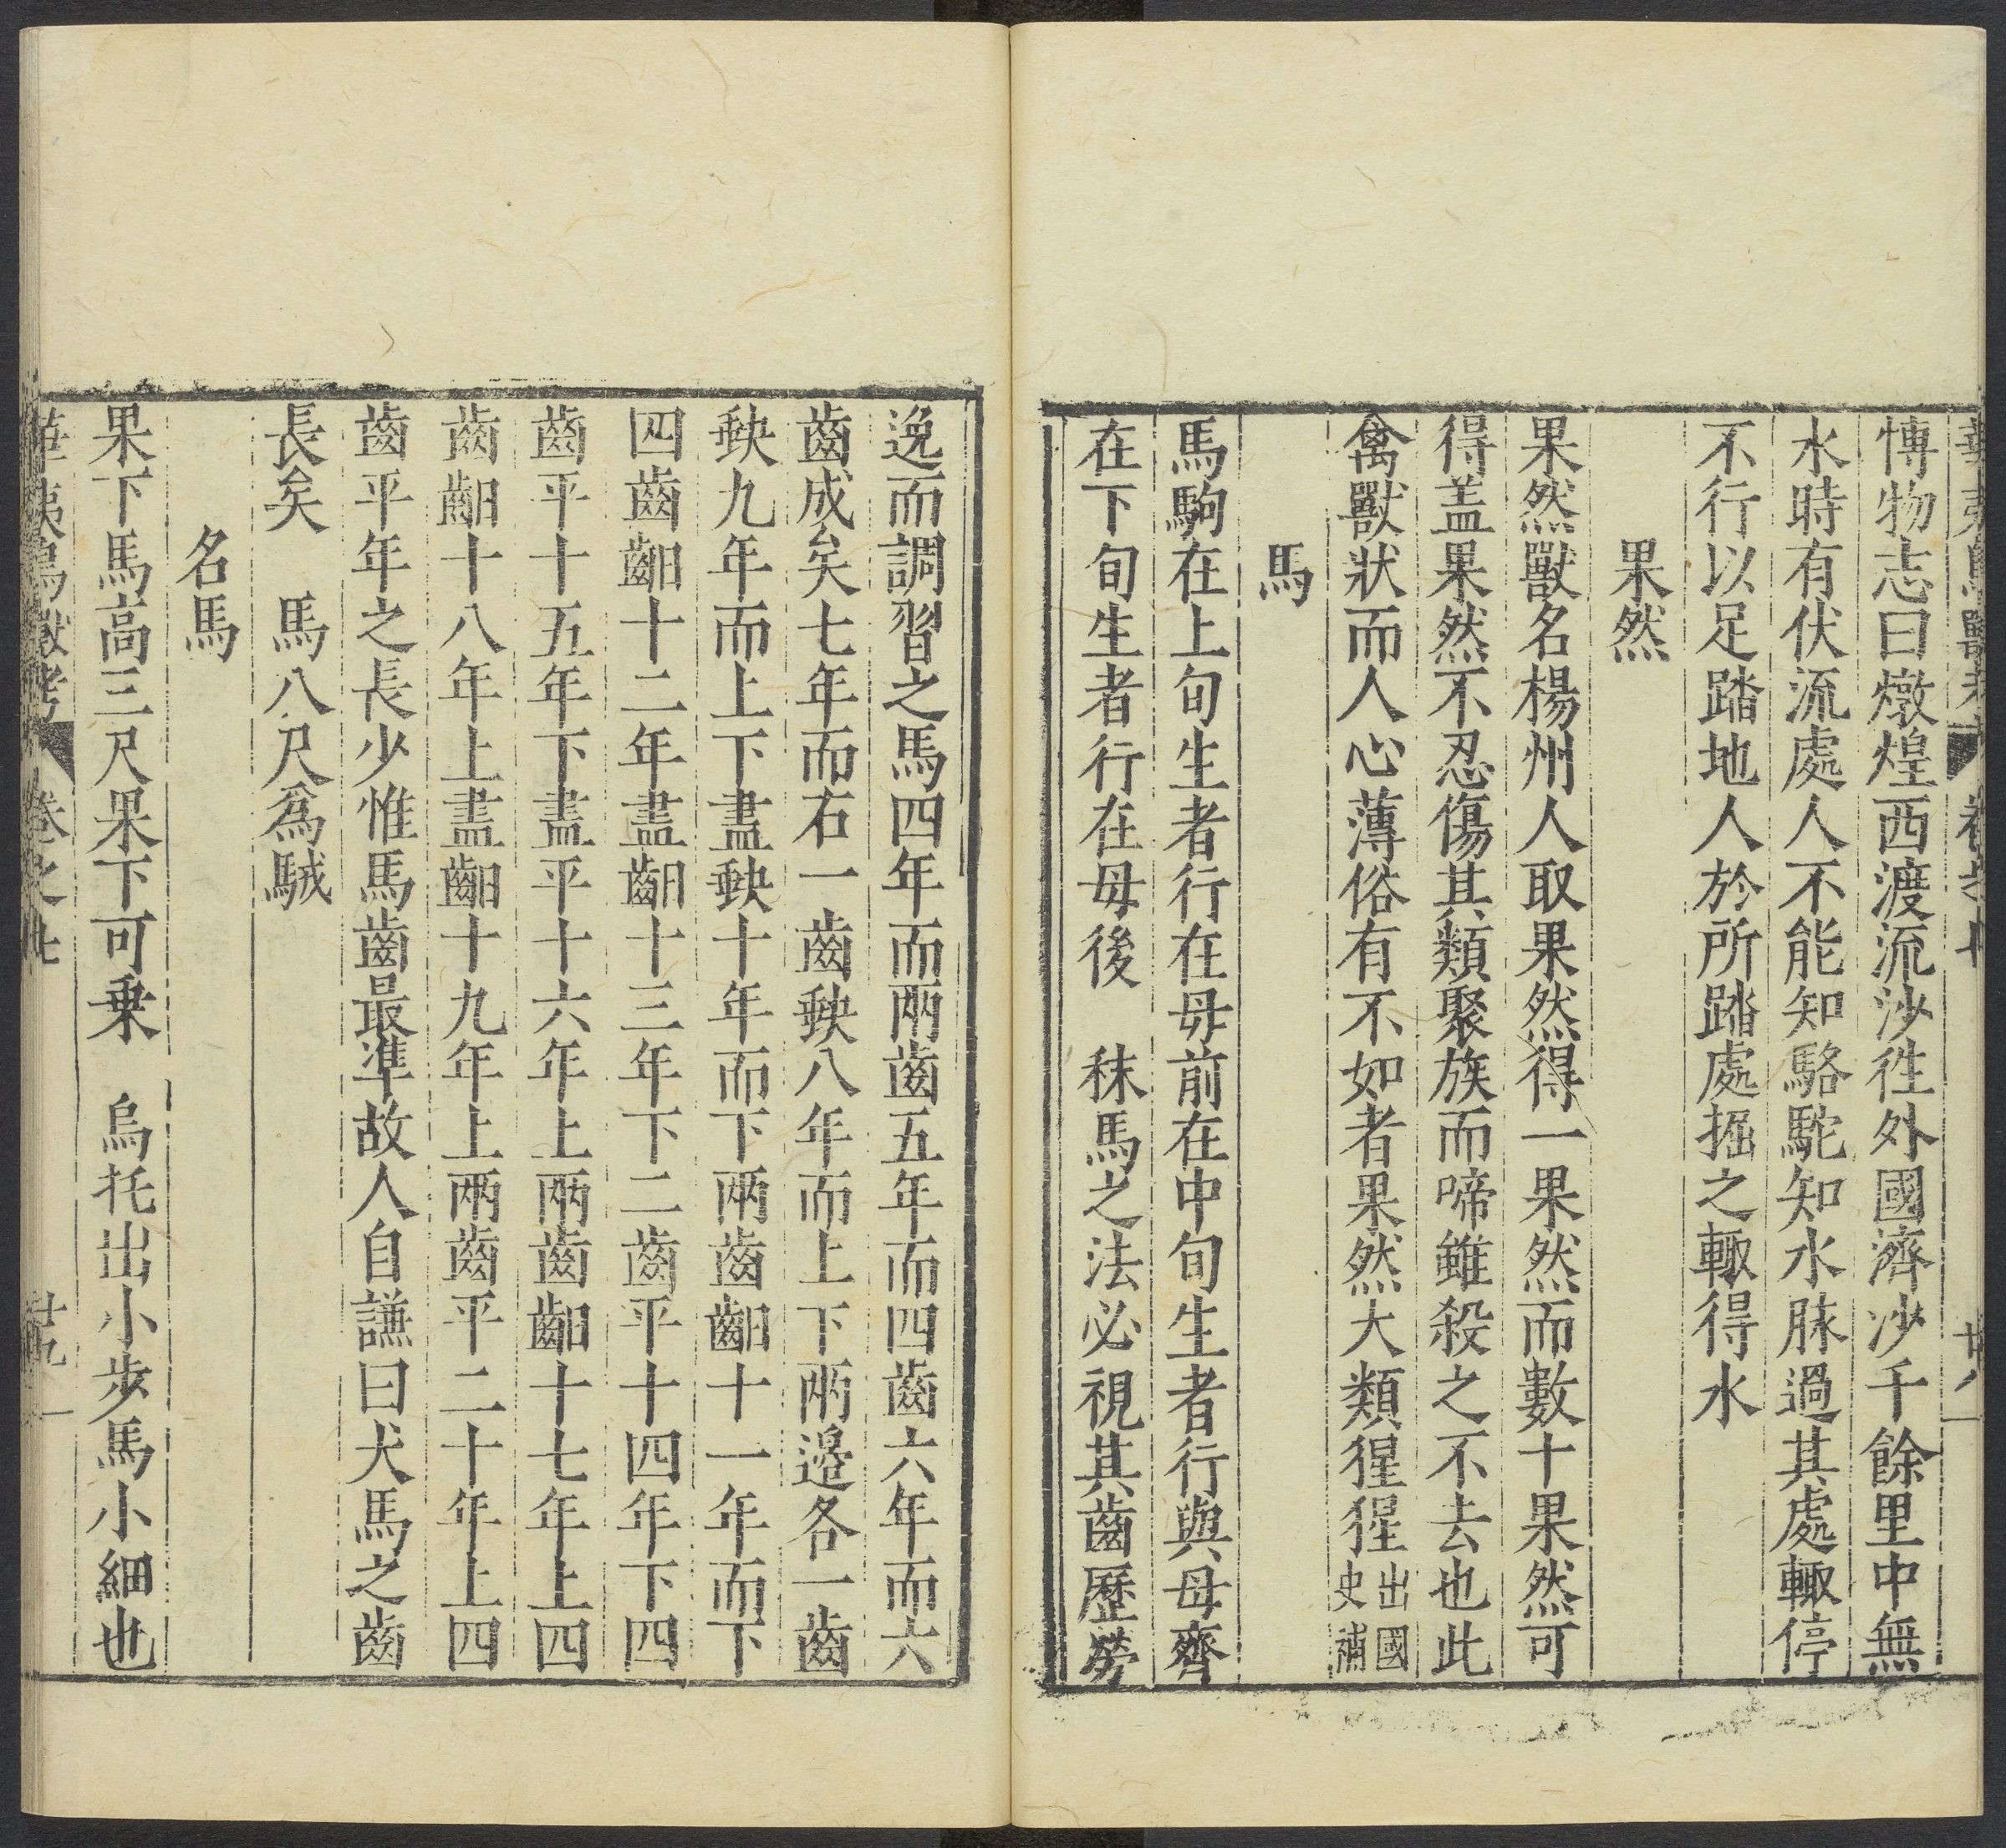 博物志曰燉煌西渡流沙徃外國濟沙千餘里中無
水時有伏流處人不能知駱駝知水脉過其處輙停
不行以足踏地人於所踏處掘之輙得水
果然
果然獸名楊州人取果然得一果然而數十果然可
得盖果然不忍傷其類聚族而啼雖殺之不去也此
禽獸狀而人心薄俗有不如者果然大類猩猩出國史補
馬
馬駒在上旬生者行在母前在中旬生者行與母齊
在下旬生者行在母後　秣馬之法必視其齒歷勞
逸而調習之馬四年而兩齒五年而四齒六年而六
齒成矣七年而右一齒𤿎八年而上下兩邉各一齒
九年而上下盡十年而下兩齒齨十一年而下
四齒齨十二年盡齨十三年下二齒平十四年下四
齒平十五年下盡平十六年上兩齒齨十七年上四
齒齨十八年上盡齨十九年上兩齒平二十年上四
齒平年之長少惟馬齒最準故人自謙曰犬馬之齒
長矣　馬八尺爲駥
名馬
果下馬高三尺果下可乗　烏秅出小步馬小細也
華夷鳥獸考　卷之七　廿九